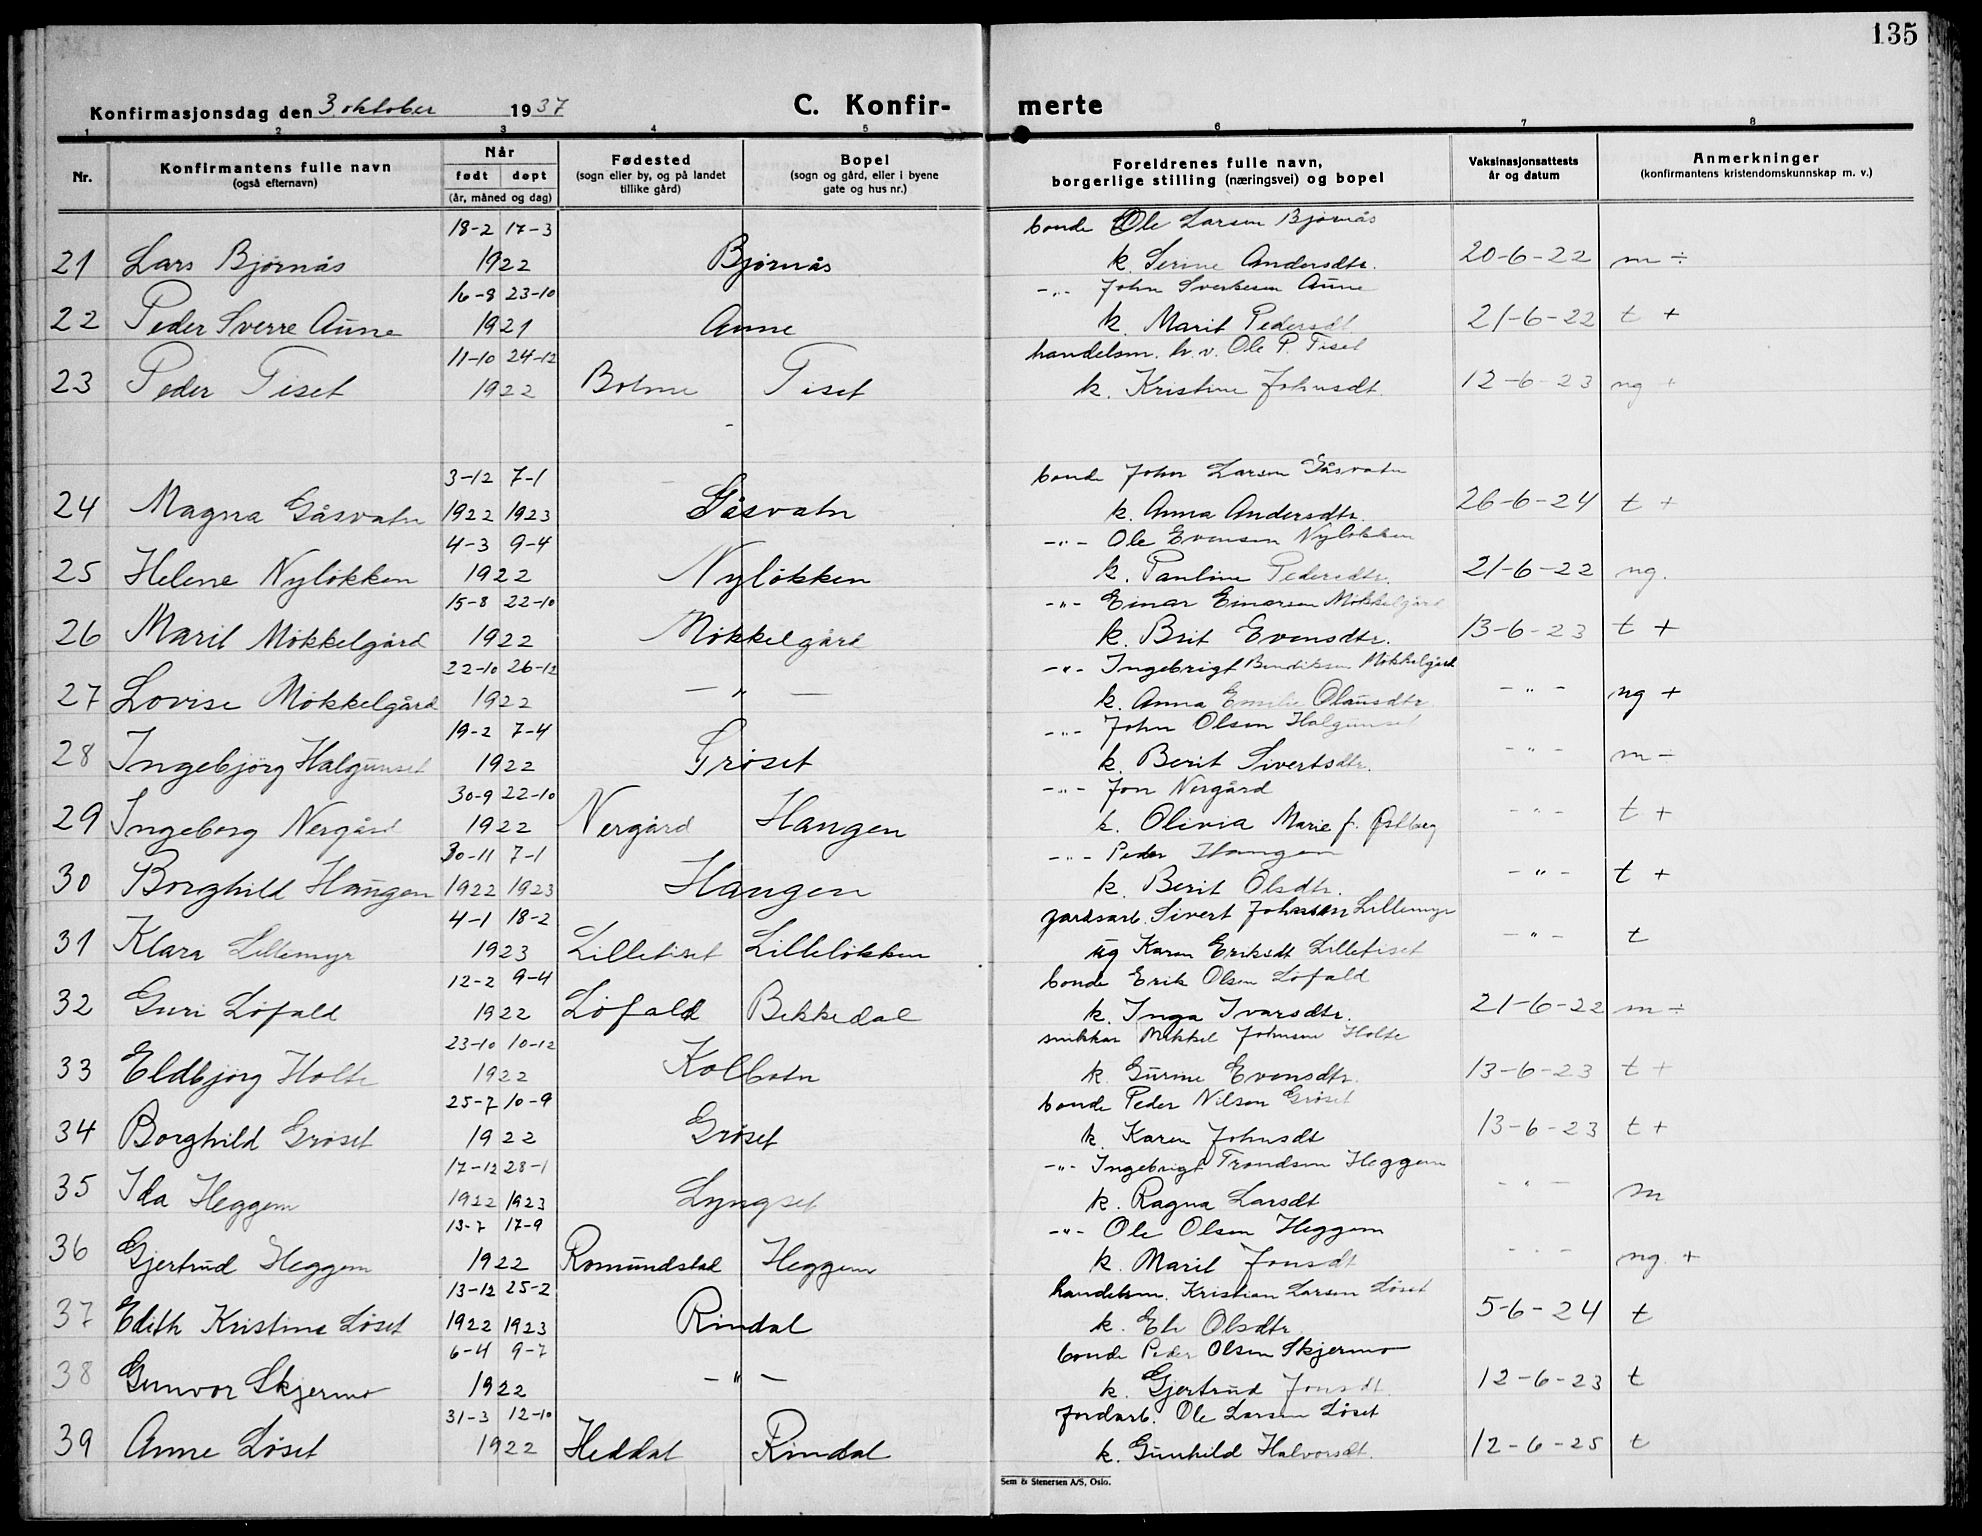 135
Konfirmasjonsdag den 3 oktober 1937 C. Konfir- merte
1 2 3 4 5 6 7 8
Nr. Konfirmantens fulle navn (også efternavn) Når født døpt (år, måned og dag) Fødested (sogn eller by, og på landet tillike gård) Bopel (sogn og gård, eller i byene gate og hus nr.) Foreldrenes fulle navn, borgerlige stilling (næringsvei) og bopel Vaksinasjonsattests år og datum Anmerkninger (konfirmantens kristendomskunnskap m. v.)
18-2 17-3 bonde Ole Larsen Bjørnås
21 Lars Bjørnås 1922 Bjørnås k. Serine Andersdtr. 20-6-22 m ÷
16-8 23-10 -"- John Sverkesen Aune
22 Peder Sverre Aune 1921 Aune k. Marit Pedersdt 21-6-22 t +
11-10 24-12 handelsm. h.v. Ole P. Tiset
23 Peder Tiset 1922 Bolme Tiset k. Kristine Johnsdt. 12-6-23 ng +
3-12 7-1 bonde John Larsen Gåsvatn
24 Magna Gåsvatn 1922 1923 Gåsvatn k. Anna Andersdtr. 26-6-24 t +
4-3 9-4 -"- Ole Evensen Nyløkken
25 Helene Nyløkken 1922 Nyløkken k. Pauline Pedersdtr. 21-6-22 ng.
15-8 22-10 -"- Einar Einarsen Møkkelgård
26 Marit Møkkelgård 1922 Møkkelgård k. Brit Evensdtr. 13-6-23 t +
22-10 26-12 -"- Ingebrigt Bendiksen Møkkelgård
27 Lovise Møkkelgård 1922 -"- k. Anna Emilie Olausdtr -"- ng +
19-2 7-4 -"- John Olsen Halgunset
28 Ingebjørg Halgunset 1922 Grøset k. Berit Sivertsdtr. -"- m -
30-9 22-10 -"- Jon Nergård
29 Ingeborg Nergård 1922 Nergård Haugen k. Olivia Marie f. Østberg -"- t +
30-11 7-1 -"- Peder Haugen
30 Borghild Haugen 1922 1923 Haugen k. Berit Olsdtr. -"- t +
4-1 18-2 gardsarb. Sivert Johnsen Lillemyr
31 Klara Lillemyr 1923 Lilletiset Lilleløkken ug Karen Eriksdt Lilletiset -"- t
12-2 9-4 bonde Erik Olsen Løfald
32 Guri Løfald 1922 Løfald Bekkedal k. Inga Ivarsdtr. 21-6-22 m ÷
23-10 10-12 snikkar Mikkel Johnsen Holte
33 Eldbjørg Holte 1922 Kolbotn k. Gurine Evensdtr. 13-6-23 t +
25-7 10-9 bonde Peder Nilsen Grøset
34 Borghild Grøset 1922 Grøset k. Karen Johnsdt 13-6-23 t +
17-12 28-1 -"- Ingebrigt Trondsen Heggem
35 Ida Heggem 1922 1923 Lyngset k. Ragna Larsdt -"- m
13-7 17-9 -"- Ole Olsen Heggem
36 Gjertrud Heggem 1922 Romundstad Heggem k. Marit Jonsdt -"- ng +
13-12 25-2 handelsm. Kristian Larsen Løset
37 Edith Kristine Løset 1922 1923 Rindal k. Eli Olsdtr 5-6-24 t
6-4 9-7 bonde Peder Olsen Skjermo
38 Gunvor Skjermo 1922 -"- k. Gjertrud Jonsdt. 12-6-23 t
31-3 12-10 jordarb. Ole Larsen Løset
39 Anne Løset 1922 Heddal Rindal k. Gunhild Halvorsdt. 12-6-25 t
Sem & Stenersen A/S, Oslo.